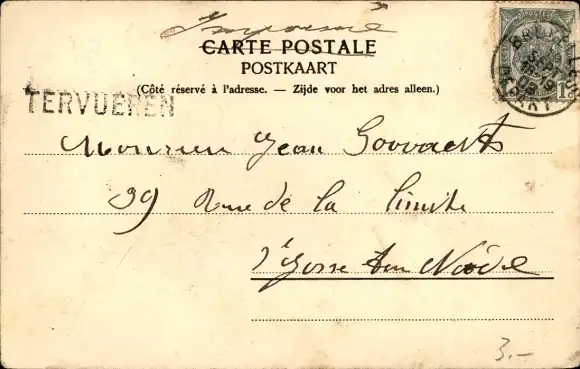 Imprimé
CARTE POSTALE
POSTKAART
(Côté réservé à l'adresse. — Zijde voor het adres alleen.)
TERVUEREN
Monsieur Jean Govaerts
39 Rue de la limite
St Josse ten Noode
3.-